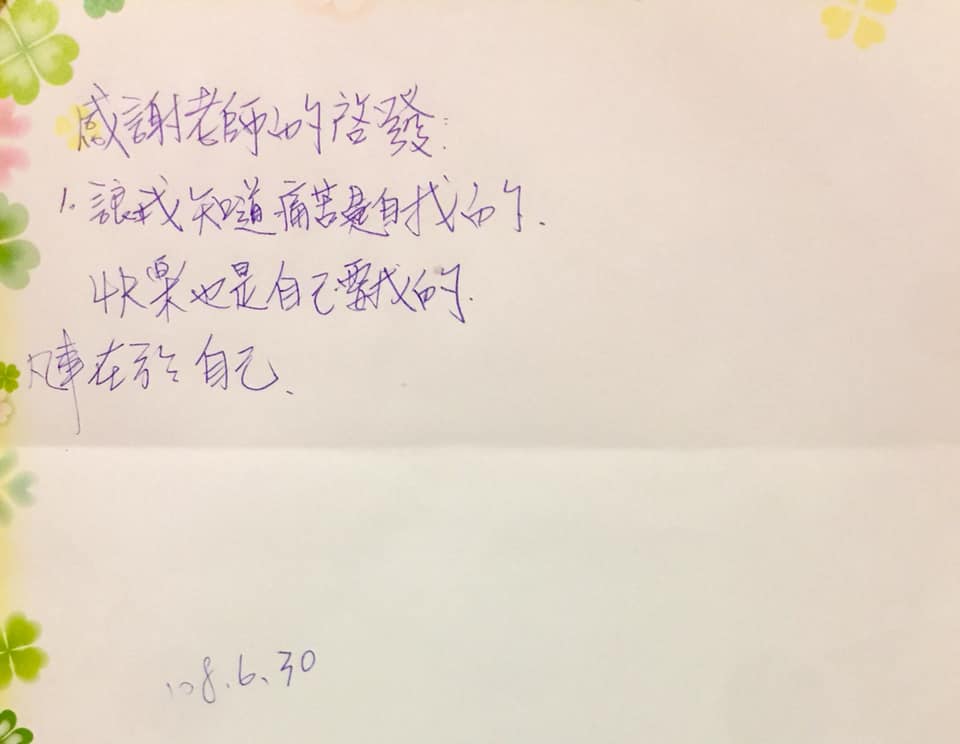 感謝老師的啓發:
1. 讓我知道痛苦是自找的.
快樂也是自己要找的.
凡事在於自己、
108.6.30